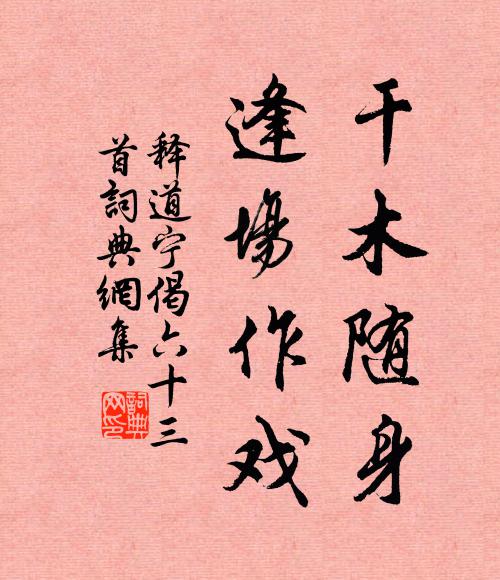 干木随身
逢場作戏
释道宁偈六十三
首詞典網集
詞典
网印